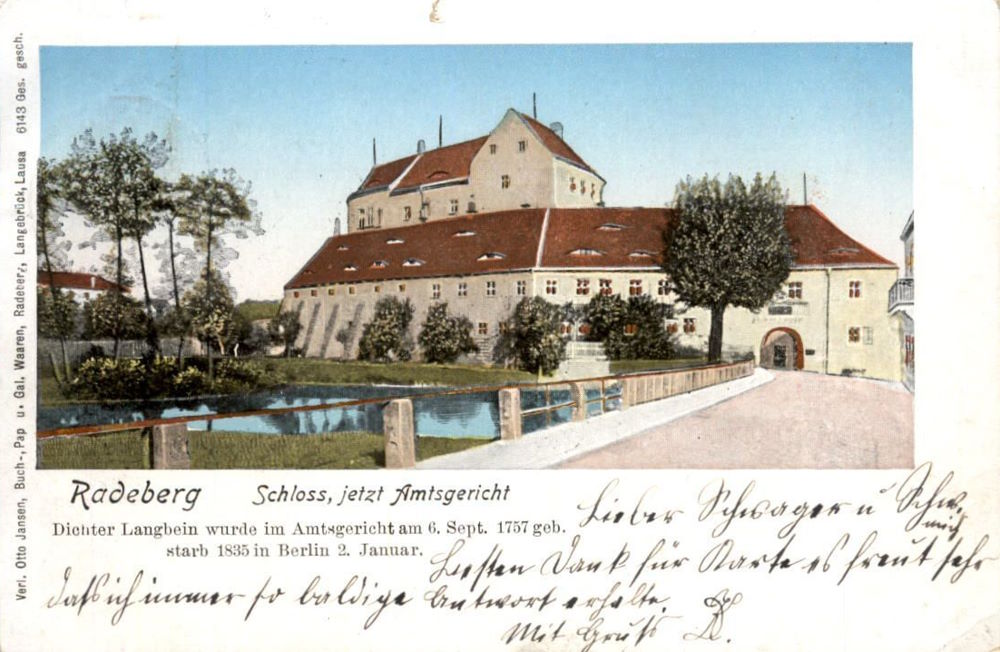 Verl. Otto Jansen, Buch-, Pap u. Gal. Waaren, Radeberg, Langebrück, Lausa 6143 Ges. gesch.
Radeberg Schloss, jetzt Amtsgericht
Dichter Langbein wurde im Amtsgericht am 6. Sept. 1757 geb.
starb 1835 in Berlin 2. Januar.
Lieber Schwager u Schw.
Besten Dank für Karte es freut mich sehr
dass ich immer so baldige Antwort erhalte.
Mit Gruß